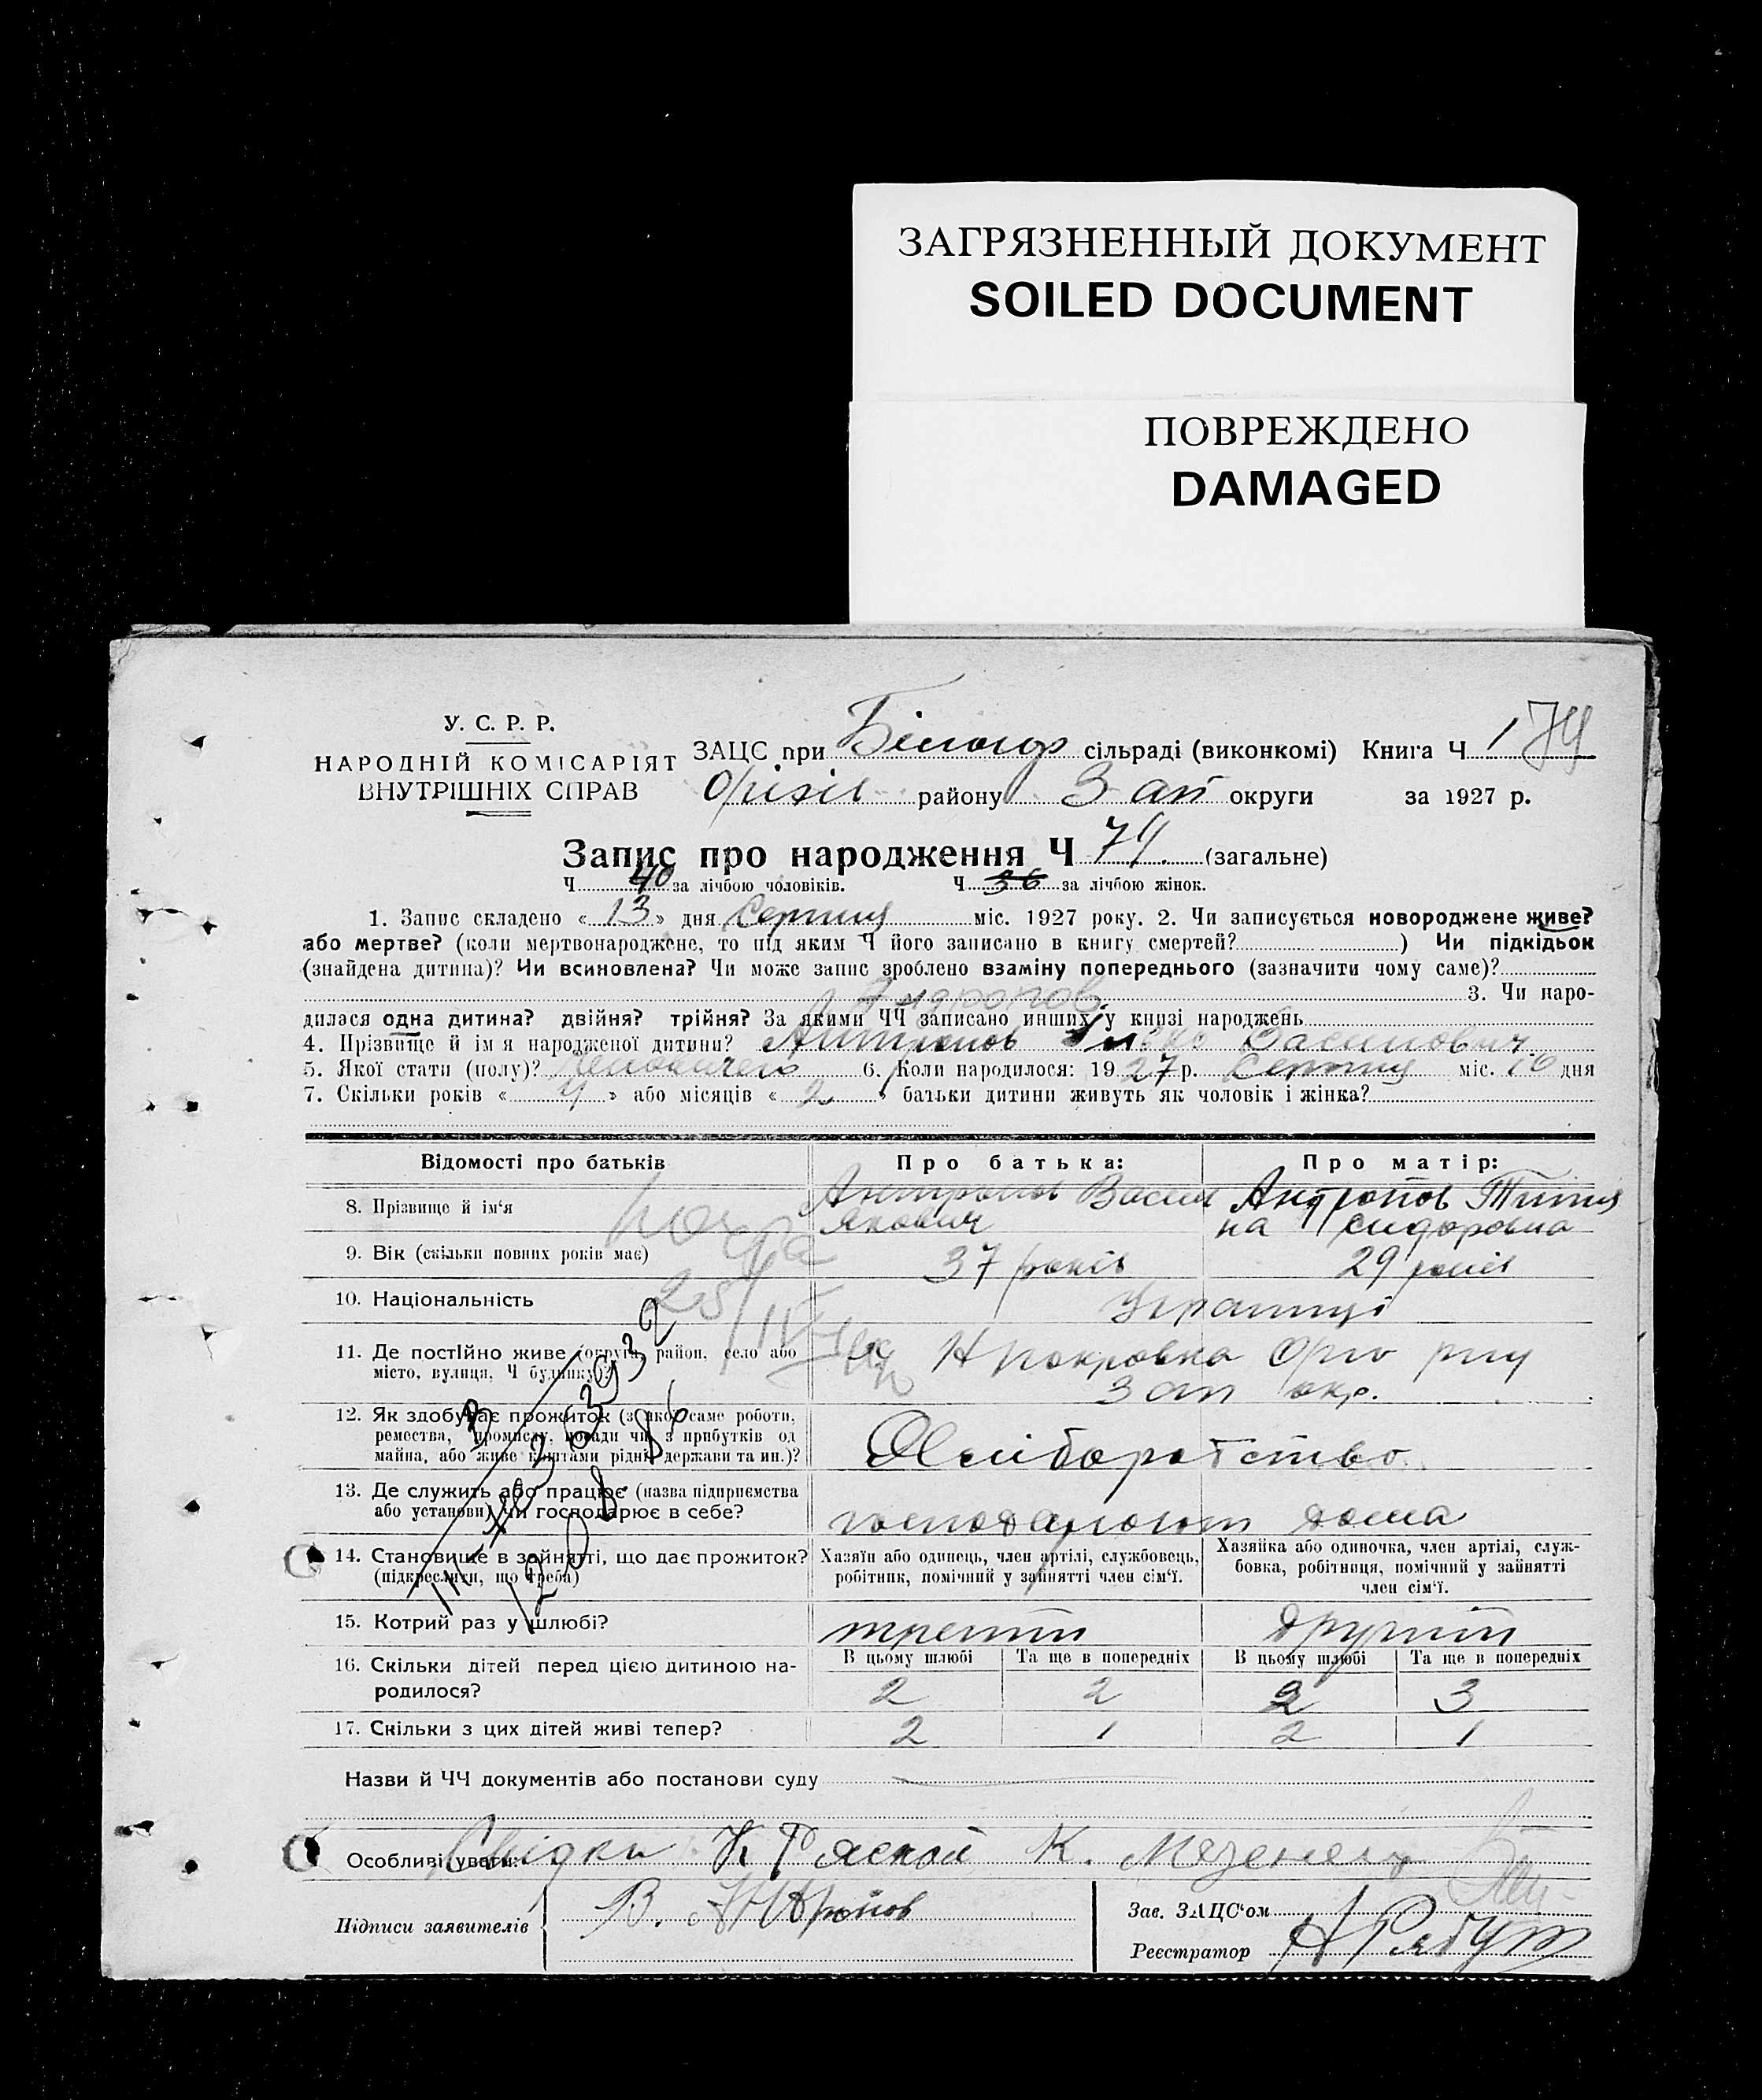 ЗАГРЯЗНЕННЫЙ ДОКУМЕНТ
SOILED DOCUMENT
ПОВРЕЖДЕНО
DAMAGED
У. С. Р. Р.
НАРОДНІЙ КОМІСАРІЯТ
ВНУТРІШНІХ СПРАВ
ЗАЦС при сільраді (виконкомі) Книга Ч 1 74
Оріхів району Зап округи за 1927 р.
Запис про народження Ч 74 (загальне)
Ч 40 за лічбою чоловіків. Ч 36 за лічбою жінок.
1. Запис складено « 13 » дня Серпня міс. 1927 року. 2. Чи записується новороджене живе?
або мертве? (коли мертвонароджене, то під яким Ч його записано в книгу смертей? ) Чи підкідьок
(знайдена дитина)? Чи всиновлена? Чи може запис зроблено взаміну попереднього (зазначити чому саме)?
Андропов 3. Чи наро-
дилася одна дитина? двійня? трійня? За якими ЧЧ записано инших у книзі народжень
4. Прізвище й ім я народженої дитини? Антропов Василович
5. Якої стати (полу)? 6. Коли народилося: 1927 р. Серпня міс. 10 дня
7. Скільки років « 4 » або місяців « 2 » батьки дитини живуть як чоловік і жінка?
Відомості про батьків Про батька: Про матір:
8. Прізвище й ім'я Антропов Васил Андропов Титя
Якович на Сидоровна
9. Вік (скільки повних років має) 37 років 29 років
10. Національність Українці
11. Де постІйно живе (округа, район, село або Н Покровка Оріх р-ну
місто, вулиця, Ч будинку)? Зап окр.
12. Як здобуває прожиток (з якої саме роботи,
ремества, промислу, посади чи з прибутків од
майна, або живе коштами рідні, держави та ин.)? Хліборобство
13. Де служить або працює (назва підприємства
або установи) чи господарює в себе? господарюют дома
14. Становище в зайнятті, що дає прожиток? Хазяїн або одинець, член артілі, службовець, Хазяйка або одиночка, член артілі, служ-
(підкреслити, що треба) робітник, помічний у зайнятті член сім'ї. бовка, робітниця, помічний у зайнятті
член сім'ї.
15. Котрий раз у шлюбі? третій другий
16. Скільки дітей перед цією дитиною на- В цьому шлюбі Та ще в попередніх В цьому шлюбі Та ще в попередніх
родилося? 2 2 2 3
17. Скільки з цих дітей живі тепер? 2 1 2 1
Назви й ЧЧ документів або постанови суду
Особливі уваги: Свідки К. К.
Підписи заявителів В. Андропов Зав. ЗАЦС'ом
Реєстратор